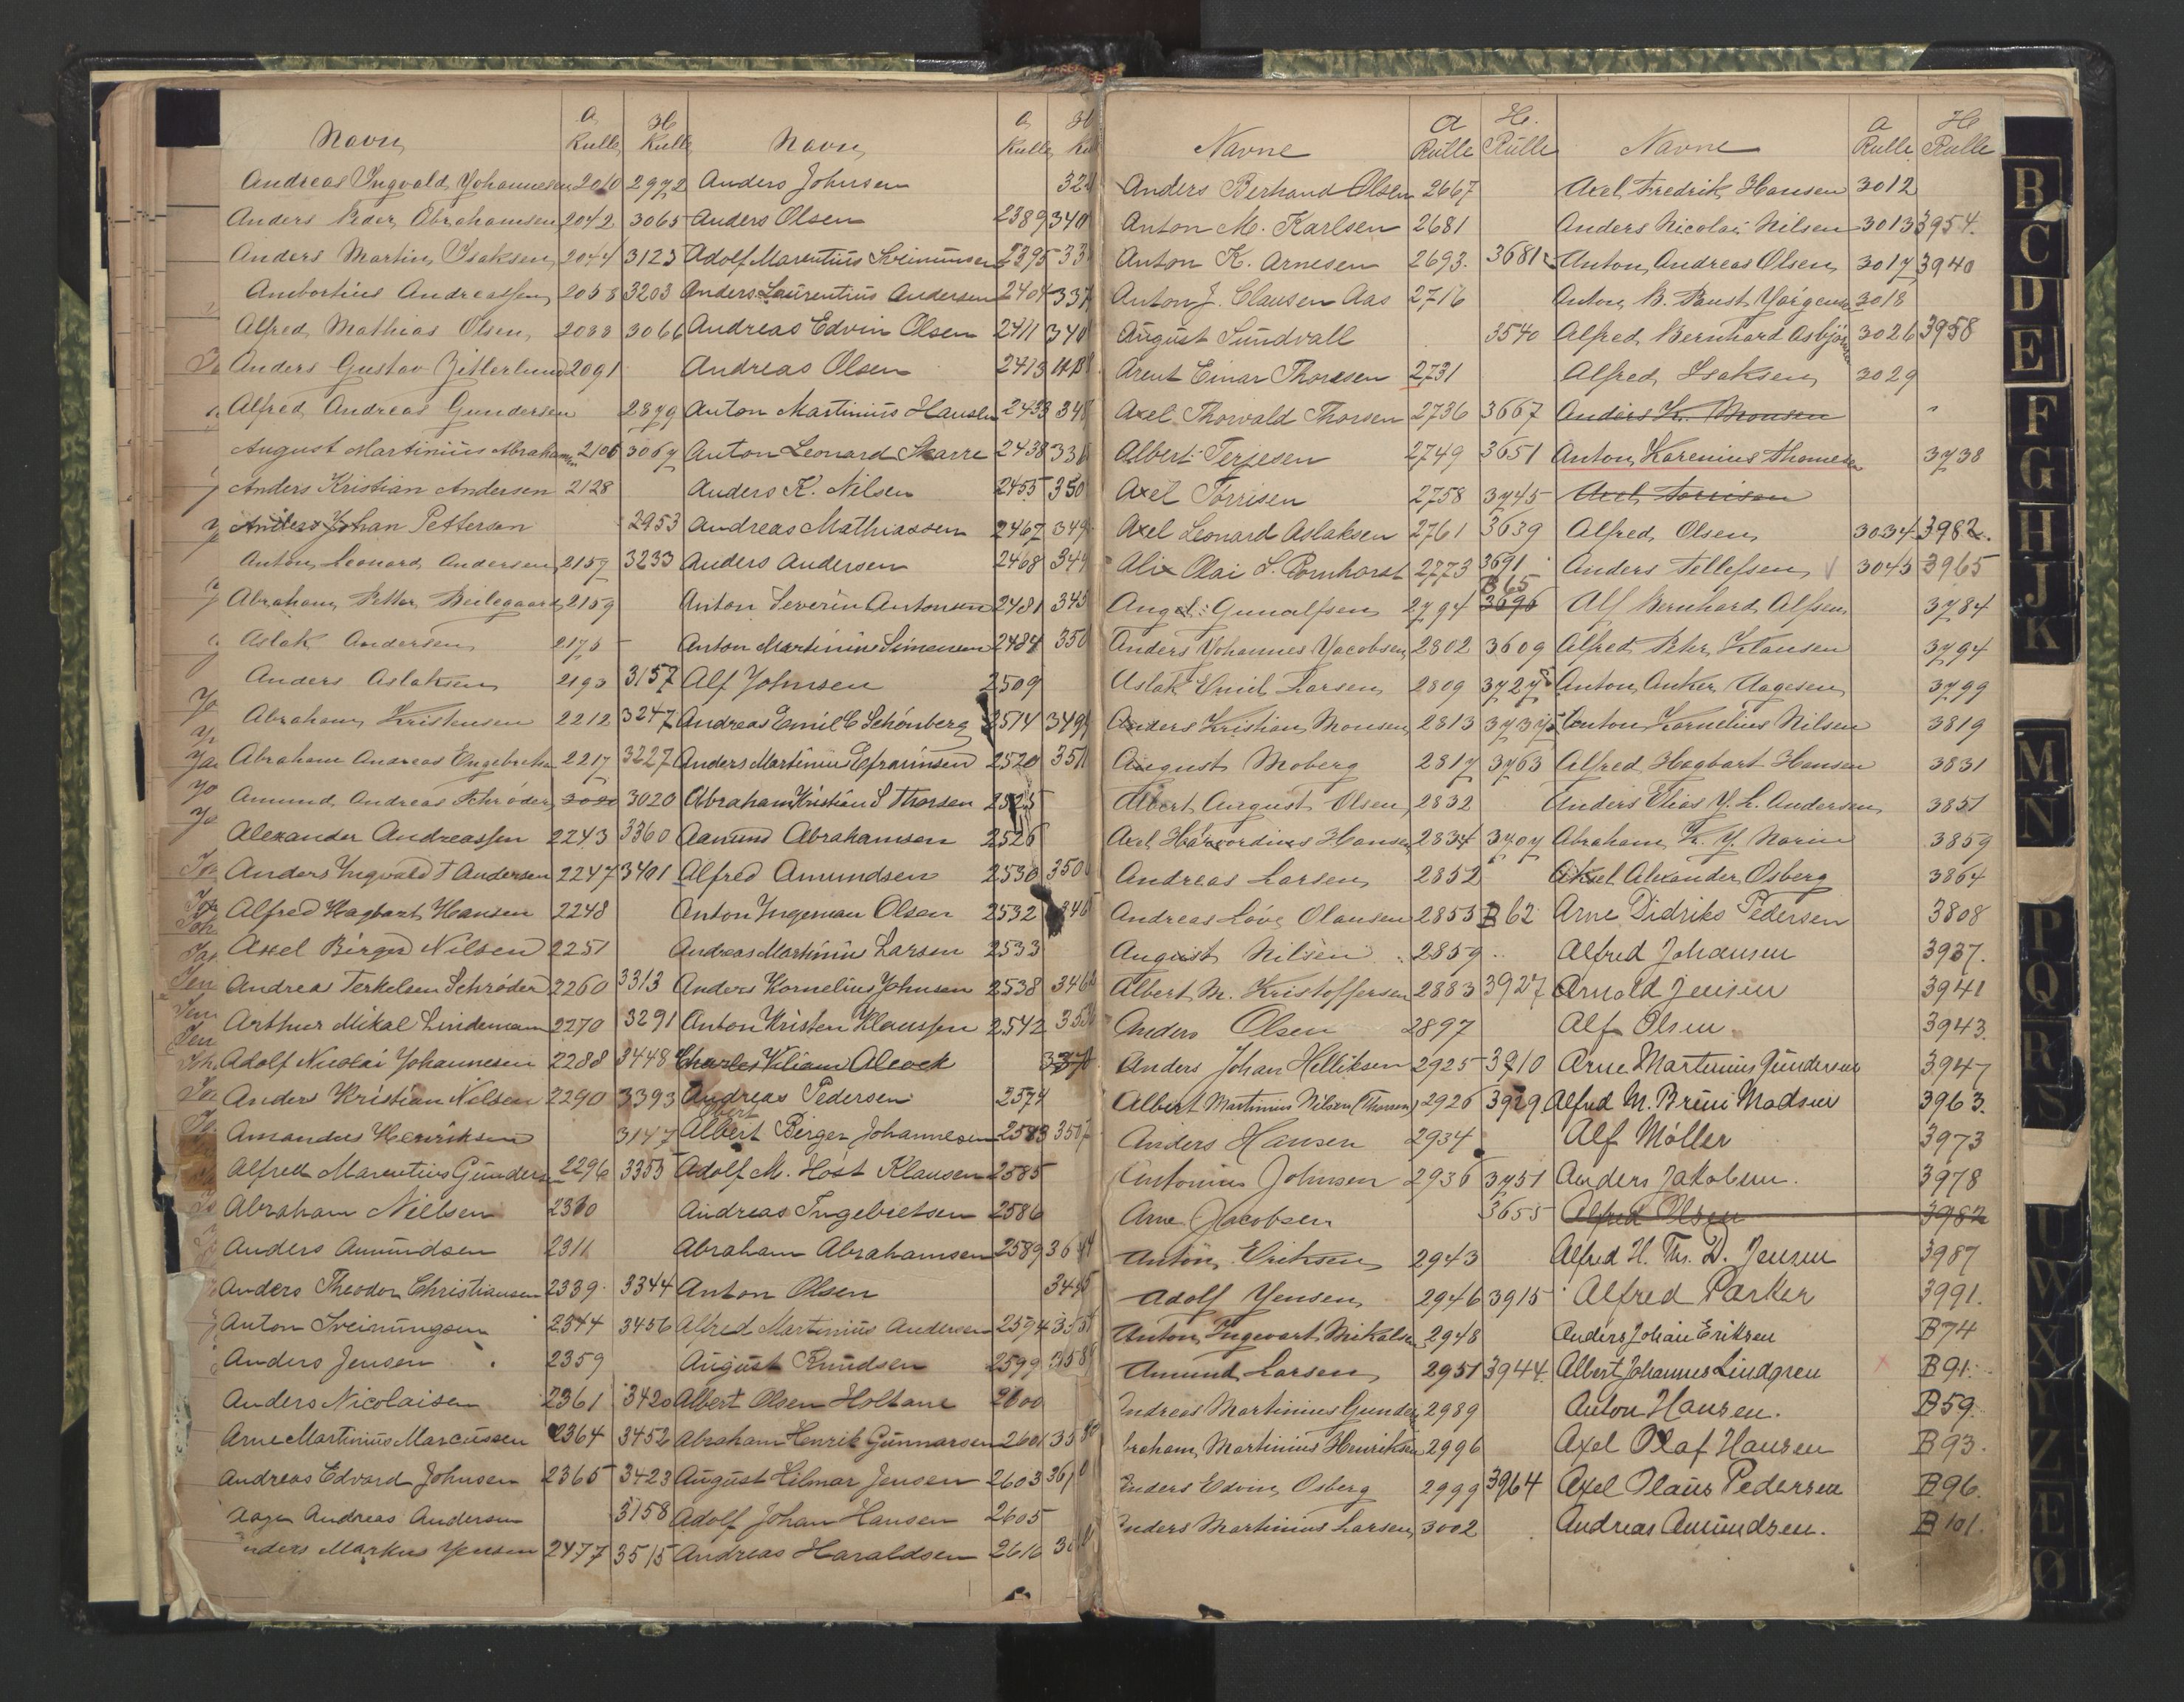 Navn A Rulle H Rulle
Andreas Ingvald Johannesen 2010 2972
Anders Peder Abrahamsen 2042 3065
Anders Martin Isaksen 2044 3125
Ambortius Andreassen 2058 3203
Alfred Mathias Olsen 2088 3066
Anders Gustav Zitterlund 2091
Alfred Andreas Gundersen 2879
August Martinius Abrahamsen 2106 3067
Anders Kristian Andersen 2128
Johan Petterson 2953
Anton Leonard Andersen 2157 3233
Abraham Petter Beilegaard 2159
Aslak Andersen 2175
Anders Aslaksen 2193 3157
Abraham Kristensen 2212 3247
Abraham Andreas Engebretsen 2217 3227
Amund Andreas Schrøder 3020 3020
Alexander Andreassen 2243 3360
Anders Ingvald T Andersen 2247 3401
Alfred Hagbart Hansen 2248
Axel Birger Nilsen 2251
Andreas Terkelsen Schrøder 2260 3313
Arthur Mikal Lindeman 2270 3291
Adolf Nicolai Johannesen 2288 3448
Anders Kristian Nilsen 2290 3393
Amandus Henriksen 3147
Alfred Marentius Gunders 2296 3355
Abraham Nielsen 2310
Anders Amundsen 2311
Anders Theodor Christiansen 2339 3344
Anton Sveinungsen 2344 3456
Anders Jensen 2359
Anders Nicolaisen 2361 3420
Arne Martinius Marcussen 2364 3452
Andreas Edvard Johnsen 2365 3423
Aage Andreas Andersen 3158
nders Markus Jensen 2477 3515
Navn A Rulle H
Anders Johnsen 32
Anders Olsen 2389 340
Adolf Marentius Sveinunsen 2395 33
Anders Laurentius Andersen 2404 337
Andreas Edvin Olsen 2411 340
Andreas Olsen 2413
Anton Martinius Hansen 2433 348
Anton Leonard Skarre 2438 336
Anders K. Nilsen 2455 350
Andreas Mathiassen 2467 349
Anders Andersen 2468 349
Anton Severin Antonsen 2481 345
Anton Martinius Simensen 2484 350
Alf Johnsen 2509
Andreas Emil C Schønberg 2514 349
Anders Martinius Efraimsen 2520 351
Abraham Kristian S Thorsen 2525
Aanund Abrahamsen 2526
Alfred Amundsen 2530 350
Anton Ingeman Olsen 2532 346
Andreas Martinius Larsen 2533
Anders Kornelius Johnsen 2538 346
Anton Kristen Klaussen 2542 353
Charles Viliam Alcock 337
Andreas Pedersen 2574
Albert Birger Johannesen 2583 350
Adolf M. Høst Klausen 2585
Andreas Ingebretsen 2586
Abraham Abrahamsen 2589 36
Anton Olsen 34
Alfred Martinius Andersen 2594 35
August Knudsen 2599 358
Albert Olsen Holtane 2600
Abraham Henrik Gunnarsen 2601 35
August Hilmar Jensen 2603 36
Adolf Johan Hansen 2605
Andreas Haraldsen 2616 3
Navne A Rulle H. Rulle
Anders Berhand Olsen 2667
Anton M. Karlsen 2681
Anton K. Arnesen 2693. 3681
Anton J. Clausen Aas 2716
August Sundvall 3540
Arent Einar Thoresen 2731
Axel Thorvald Thorsen 2736 3667
Albert Terjesen 2749 3651
Axel Torrisen 2758 3745
Axel Leonard Aslaksen 2761 3639
Alix Olai S. Pornhorst 2773 3691
Aug. Gunulfsen 2794 B 65 3696
Anders Johannes Jacobsen 2802 3609
Aslak Emil Larsen 2809 3727
Anders Kristian Monsen 2813 3737
August Moberg 2817 3763
Albert August Olsen 2832
Axel Havordius Hansen 2834 3707
Andreas Larsen 2852
Andreas Løve Olausen 2855 B 62
August Nilsen 2859
Albert M. Kristoffersen 2883 3927
Anders Olsen 2897
Anders Johan Helliksen 2925 3710
Albert Martinius Nilsen (Thorsen) 2926 3929
Anders Hansen 2934
Antonius Johnsen 2936 3751
Arne Jacobsen 3655
Anton Eriksen 2943
Adolf Jensen 2946 3915
Anton Ingevart Mikalsen 2948
Amund Larsen 2951 3944
Andreas Martinius Gunders 2989
braham Martinius Henriksen 2996
Anders Edvin Osberg 2999 3964
Anders Martinius Larsen 3002
Navne A Rulle H Rulle
Axel Fredrik Hansen 3012
Anders Nicolai Nilsen 3013 3954.
Anton Andreas Olsen 3017 3940
Anton B. Paust Jørgens 3018
Alfred Bernhard Asbjørnsen 3026 3958
Alfred Isaksen 3029
Anders K. Monsen
Anton Karenius Thomesen 3738
Axel Torrisen
Alfred Olsen 3034 3982.
Anders Tellefsen 3045 3965
Alf Bernhard Alfsen 3784
Alfred Pehr Klausen 3794
Anton Anker Aagesen 3799
Anton Kornelius Nilsen 3819
Alfred Hagbart Hansen 3831
Anders Elias J. L. Andersen 3851
Abraham K. J. Narin 3859
Aksel Alexander Osberg 3864
Arne Didriks Pedersen 3808
Alfred Johansen 3937.
Arnold Jensen 3941
Alf Olsen 3943.
Arne Martinius Gundersen 3947
Alfred M. Bruu Madsen 3963.
Alf Møller 3973
Anders Jakobsen. 3978
Alfred Olsen 3982
Alfred H. Th. D. Jensen 3987
Alfred Parker 3991.
Anders Johan Eriksen B74
Albert Johannes Lindgren B 91.
Anton Hansen. B 59.
Axel Olaf Hansen B 93.
Axel Olaus Pedersen B 96.
Andreas Amundsen. B 101.
B
C
D
E
F
G
H
J
K
M
N
P
Q
R
S
T
W
X
Y
Z
Æ
Ø